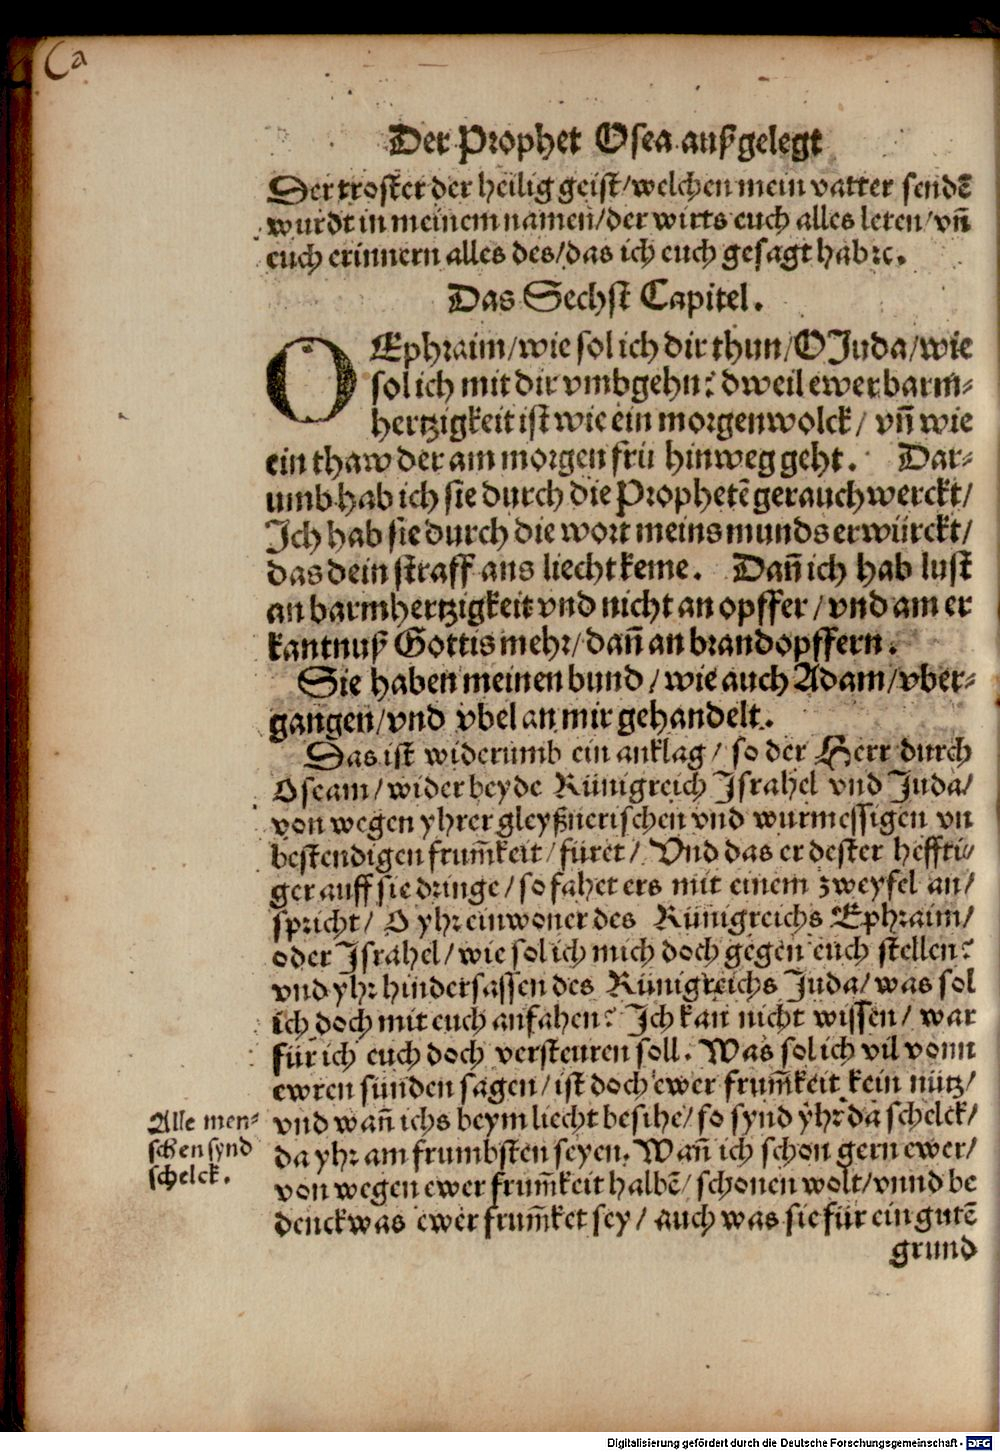 Ca
Der Prophet Osea außgelegt
Der troster der heilig geist/welchen mein vatter sendē
wurdt in meinem namen/der wirts euch alles leren/vñ
euch erinnern alles des/das ich euch gesagt hab ꝛc.
Das Sechst Capitel.
O Ephraim/wie sol ich dir thun/O Juda/wie
sol ich mit dir vmbgehn? dweil ewer barm⸗
hertzigkeit ist wie ein morgenwolck/ vñ wie
ein thaw der am morgen frü hinweg geht. Dar⸗
umb hab ich sie durch die Prophetē gerauchwerckt/
Ich hab sie durch die wort meins munds erwürckt/
das dein straff ans liecht keme. Dañ ich hab lust
an barmhertzigkeit vnd nicht an opffer/vnd am er
kantnuß Gottis mehr/dañ an brandopffern.
Sie haben meinen bund/wie auch Adam/vber⸗
gangen/vnd vbel an mir gehandelt.
Das ist widerumb ein anklag/ so der Herr durch
Oseam/wider beyde Künigreich Israhel vnd Juda/
von wegen yhrer gleyßnerischen vnd wurmessigen vn
bestendigen frum̃keit/füret/ Vnd das er dester hefftï⸗
ger auff sie dringe/so fahet ers mit einem zweyfel an/
spricht/ O yhr einwoner des Künigreichs Ephraim/
oder Israhel/wie sol ich mich doch gegen euch stellen?
vnd yhr hindersassen des Künigreichs Juda/was sol
ich doch mit euch anfahen? Ich kan nicht wissen/ war
für ich euch doch versteuren soll. Was sol ich vil vonn
ewren sunden sagen/ist doch ewer frum̃keit kein nütz/
vnd wañ ichs beym liecht besihe/so synd yhr da schelck/
da yhr am frumbsten seyen. Wañ ich schon gern ewer/
von wegen ewer frum̃keit halbē/schonen wolt/vnnd be
denck was ewer frum̃ket sey/ auch was sie für ein gutē
grund
Alle men⸗
schen synd
schelck.
Digitalisierung gefördert durch die Deutsche Forschungsgemeinschaft - DFG